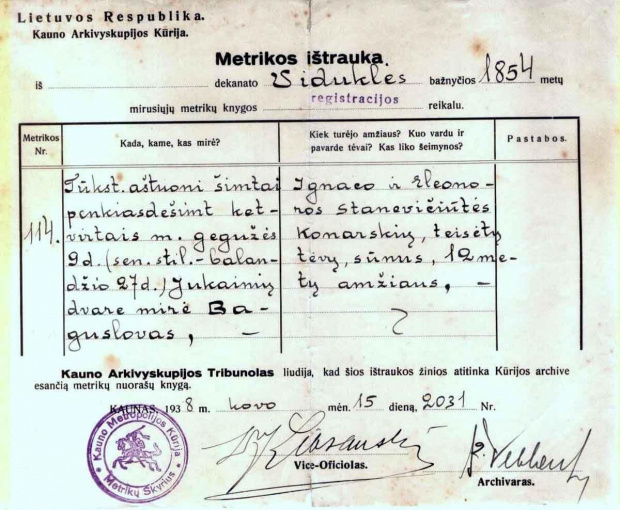 Lietuvos Respublika.
Kauno Arkivyskupijos Kūrija.
Metrikos ištrauka
iš dekanato Viduklės bažnyčios 1854 metų
mirusiųjų metrikų knygos registracijos reikalu.
Metrikos Nr.
Kada, kame, kas mirė?
Kiek turėjo amžiaus? Kuo vardu ir pavarde tėvai? Kas liko šeimynos?
Pastabos.
114.
Tūkst. aštuoni šimtai
penkiasdešimt ket-
virtais m. gegužės
9 d. (sen. stil. - balan-
džio 27 d.) Jukainių
dvare mirė Ba-
guslovas, —
Ignaco ir Eleono-
ros Stanevičiūtės
Konarskių, teisėtų
tėvų, sūnus, 12 me-
tų amžiaus, —
Kauno Arkivyskupijos Tribunolas liudija, kad šios ištraukos žinios atitinka Kūrijos archive
esančią metrikų nuorašų knygą.
KAUNAS, 1938 m. kovo mėn. 15 dieną, 2031 Nr.
Kauno Metropolijos Kūrija
Metrikų Skyrius
Vice-Oficiolas.
Archivaras.